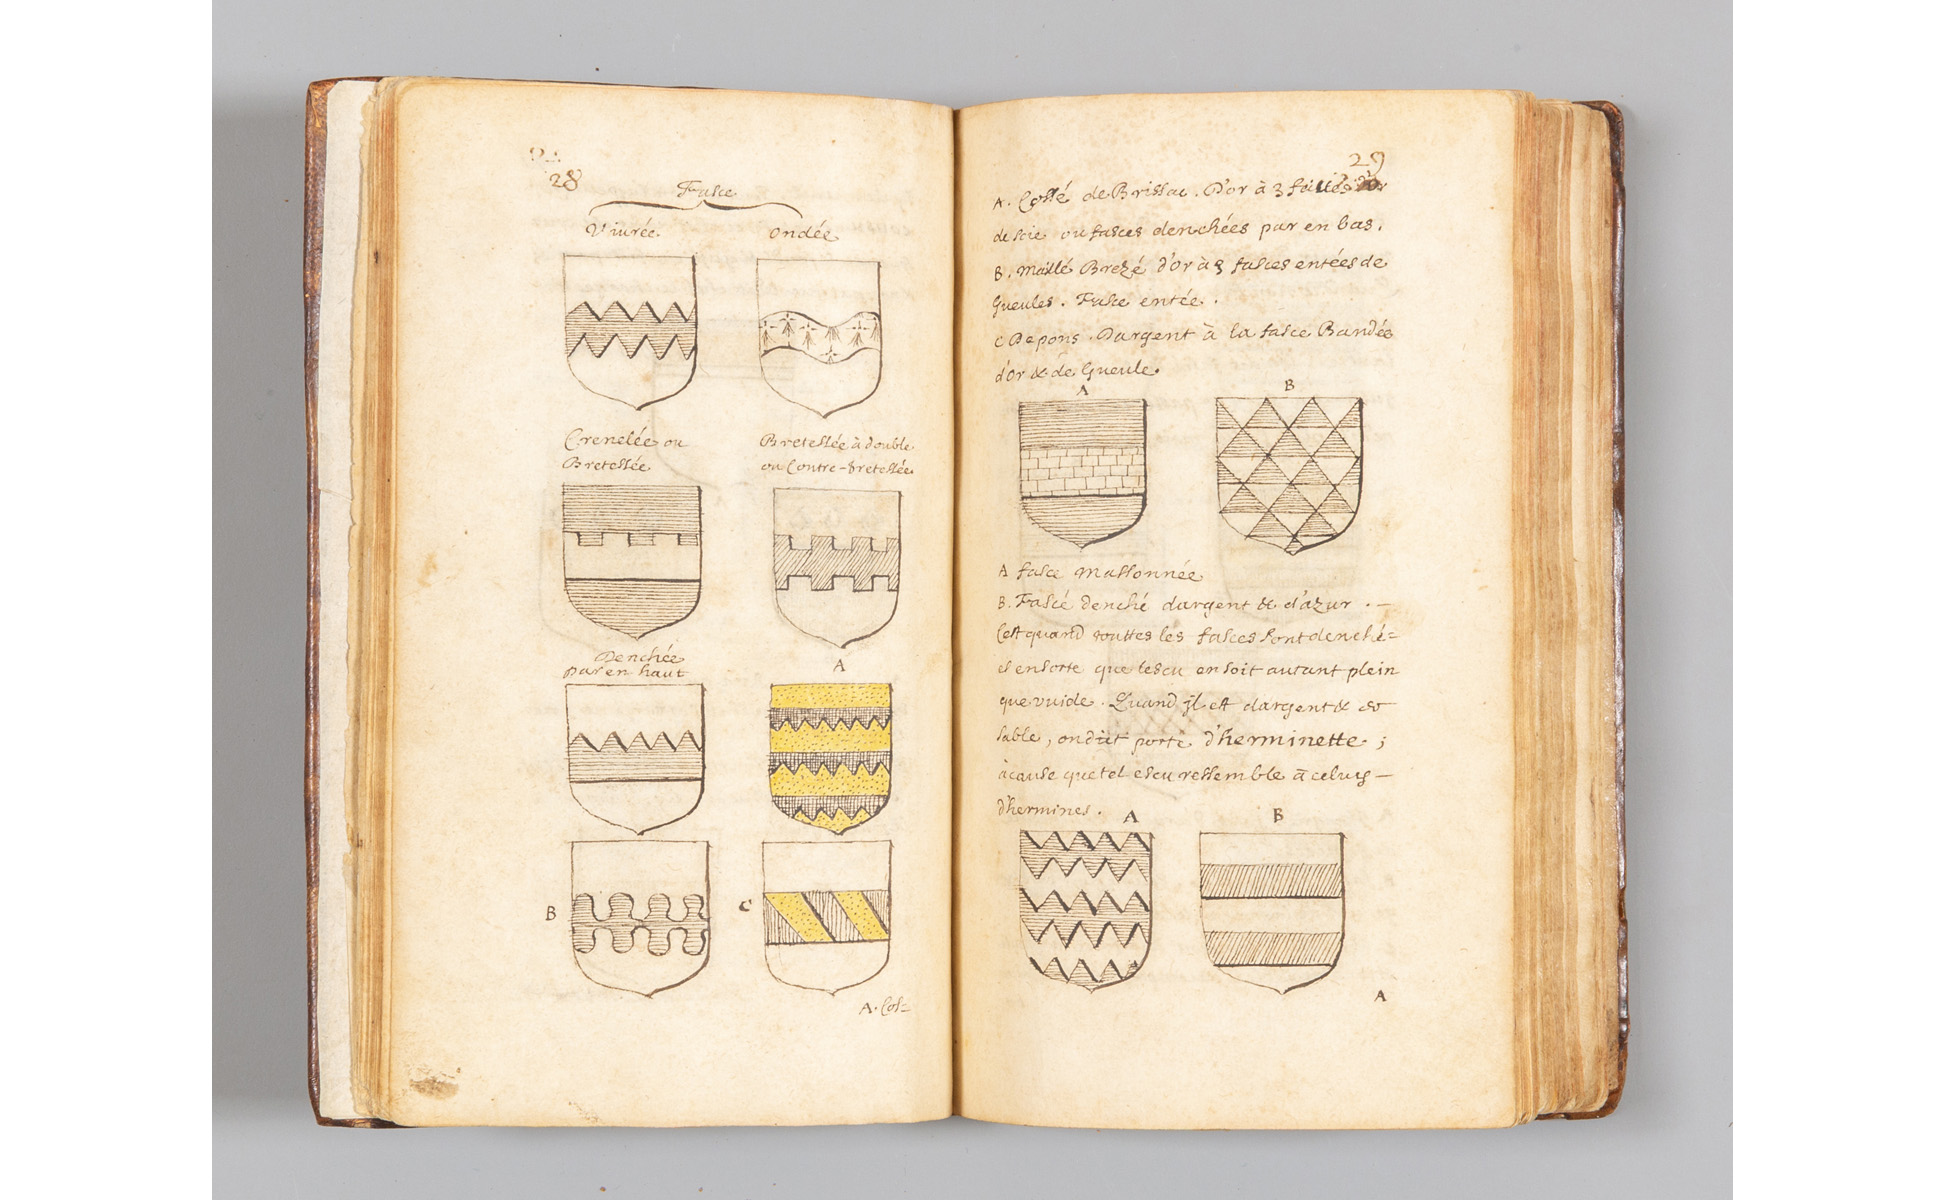 28
Fasce
Viurée. ondée
Crenelée ou
Bretessée
Bretessée à double
ou Contre-bretessée
Denchée
par en haut
A
B
C
A. Cos=
29
A. Cossé de Brissac. D'or à 3
de scie ou fasces denchées par en bas.
B. Maillé Brezé d'or à 3 fasces entées de
Gueules. Fasce entée.
C Depons. Dargent à la fasce Bandée
d'Or & de Gueule.
A B
A fasce massonnée
B. Fascé denché dargent & d'azur. —
Cest quand touttes les fasces sont denché=
es ensorte que lescu en soit autant plein
que vuide. Quand jl est dargent & de
sable, on dit porte d'herminette;
à cause que tel escu ressemble à celuy —
d'hermines.
A B
A